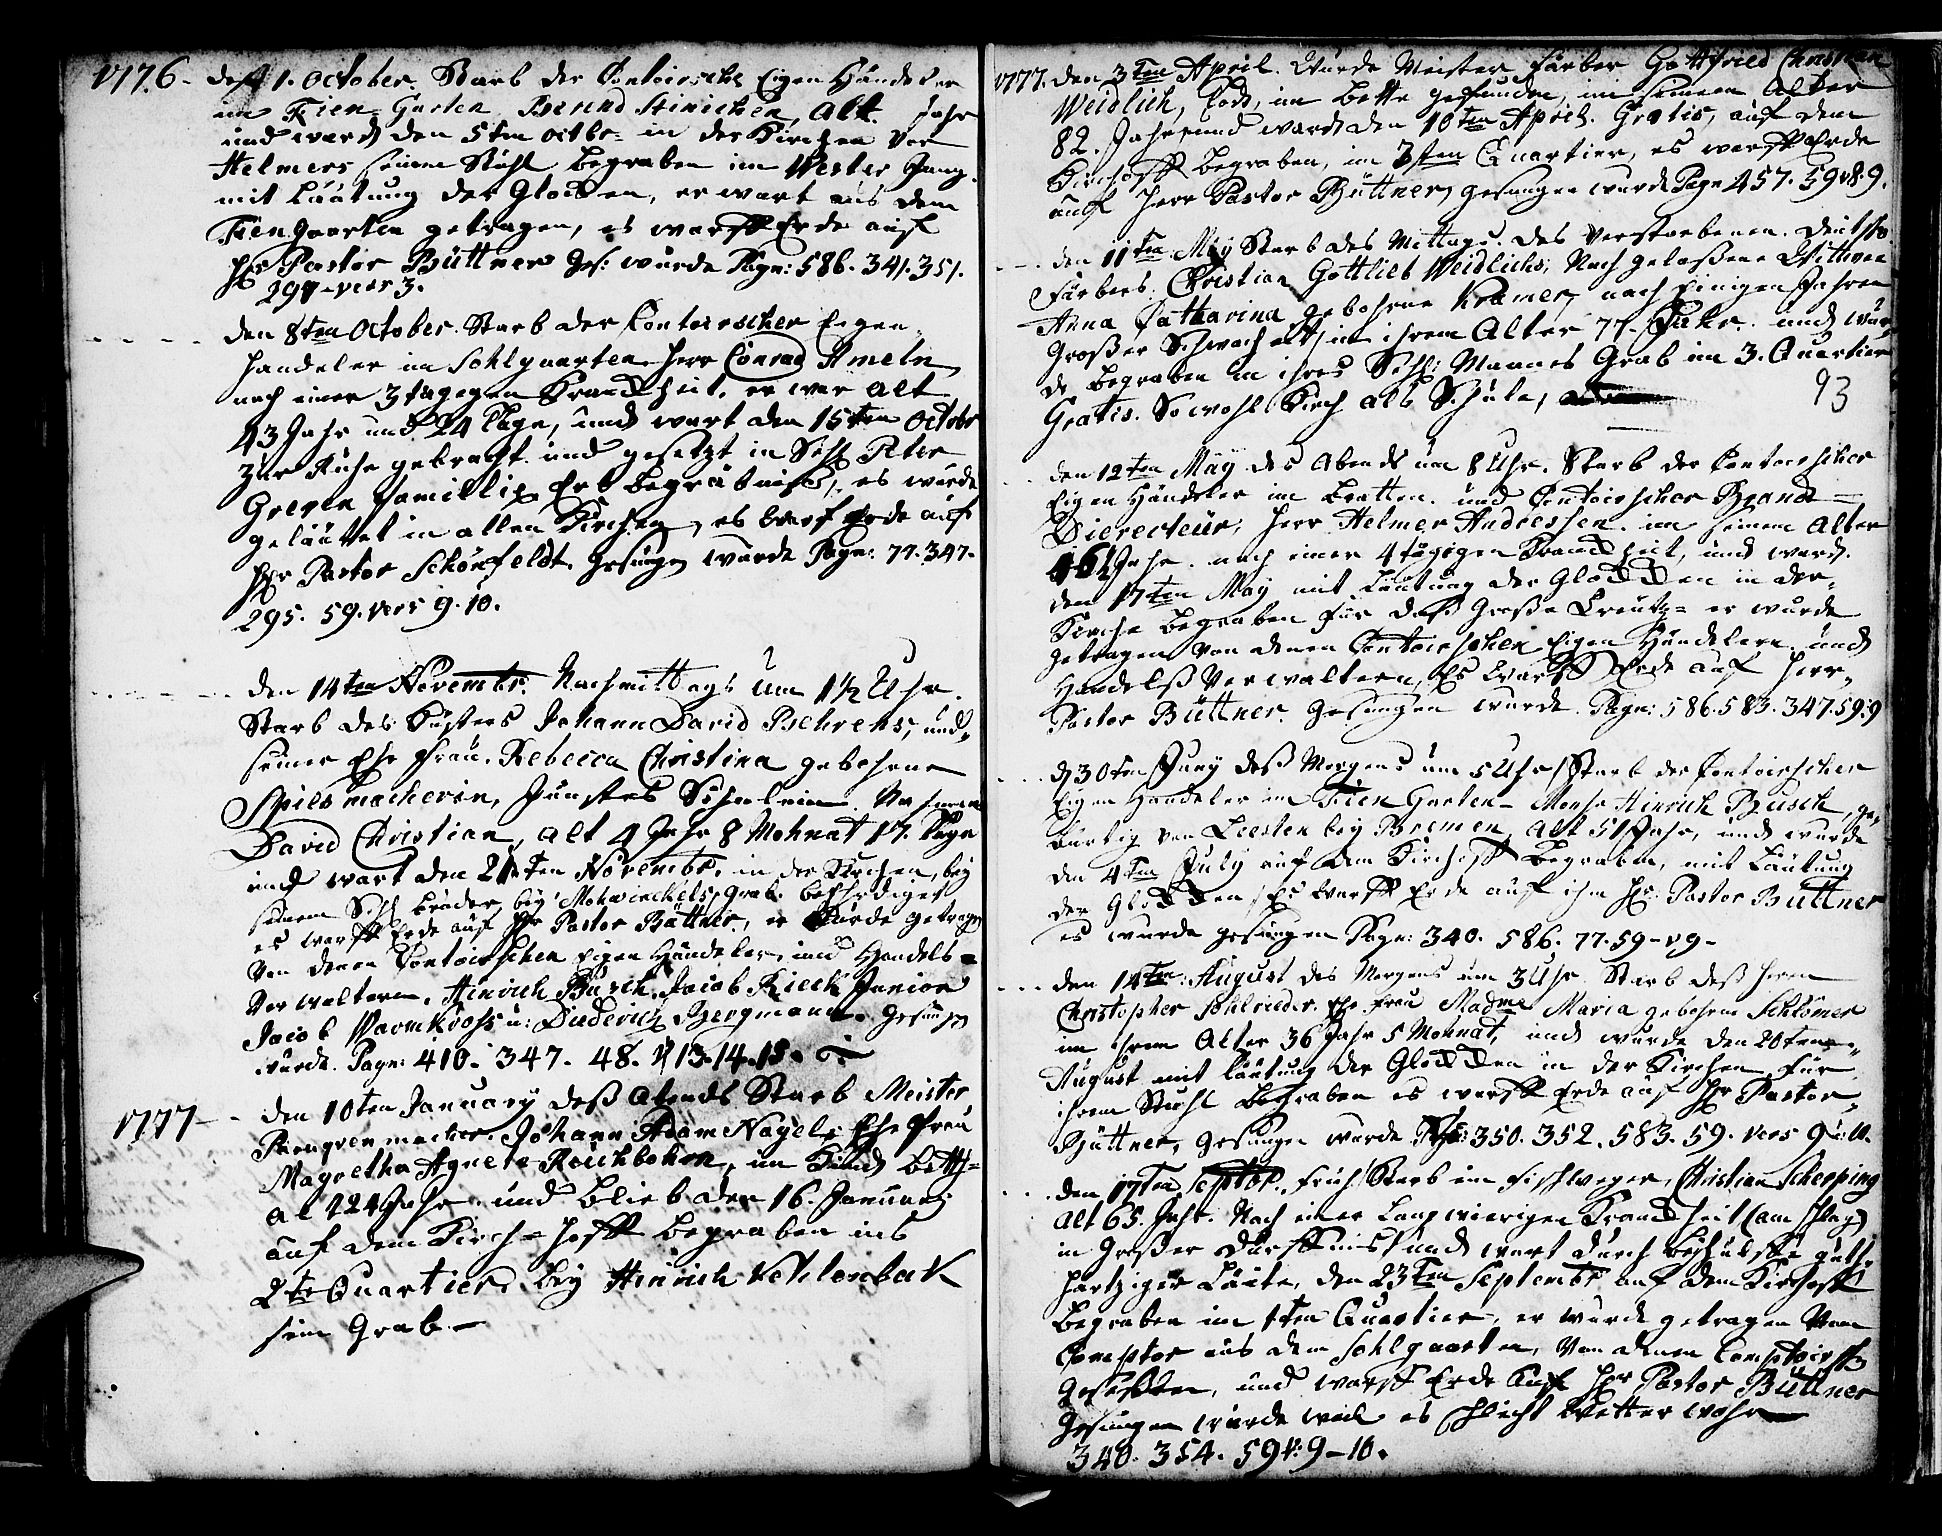 1776 - deß 1. October. Starb der Contoirsche Eigen Händeler
im Fien-Garten Bernd Heinicken, Alt. Jahr
und ward den 5ten Octbr= in der Kirchen vor
Helmers seinem Stühl begraben im Wester Gang.
mit Läutung der Glocken, er wart aus dem
Fiengaarten getragen, es warff Erde auf
Hr Pastor Büttner Ges: wurde Pagn: 586. 341. 351.
297 - vers 3.
den 8ten October. Starb der Contoirscher Eigen
Handeler im Sohlgaarten Herr Conrad Ameln
nach einer 3 tägegen Kranckheit, er war alt
43 Jahr und 24 Tage, und wart den 15ten Octobr
zur Ruhe gebracht und gesetzt in Sehl Peter
Greven Familliie Erb Begräbniß, es würde
geläutet in allen Kirchen, es warf Erde auf
Hr Pastor Schönfeldt. Gesungen würde Pagn: 77. 347.
295. 59. vers 9. 10.
den 14ten Novembr. Nachmittags Um 1½ Uhr.
Starb des Küsters Johann David Behrens, und
seiner Ehe Frau. Rebecca Christina gebohrne
Spielmacherin, Jüngstes Söhnlein. Nahmens
David Christian, alt 4 Jahr 8 Mohnat 17. Tage
und wart den 21ten Novembr. in der Kirchen, bey
seinem Sehl Brüder bey Mohwinckels Grab. beerhdiget
es warff Erde auf Hr Pastor Büttner, er würde getragen
Von denen Contoirschen Eigen Händeler, und Handels=
Verwaltern. Hinrich Büsch. Jacob Kieck Junior
Jacob Warmkross u: Diderich Bergmann. Gesungen
wurde. Pagn: 410. 347. 48. v 13. 14. 15.
1777 - den 10ten January deß Abends Starb Meister
Paruquenmacher. Johann Adam Nagels Ehe Frau
Magretha Agneta Reichboken, im Kind Bette=
alt 24 Jahr und blieb den 16. January
auf dem Kirch=hoff begraben ins
2te Quartier. bey Hinrich Kohlenbak
sein Grab. -
1777. den 3ten April. Wurde Meister Färber Gottfried Christian
Weidlich, Todt, im Bette gefunden, in seinem Alter
82. Jahr, und ward den 10ten April. Gratis, auf dem
Kirchoff begraben, im 3sten Quartier, es warff Erde
auf Herr Pastor Büttner, gesungen wurde Pagn 457. 59 v 8. 9.
den 11ten May Starb des Mittags. des Verstorbenen.
Färbers. Christian Gottlieb Weidlichs, Nach gelaßene Wittwee
Anna Catharina gebohrne Kramer, nach Einigen Jahren
Großer Schwachheit, in ihrem Alter 77. Jahr. und wur=
de begraben in ihres Sehl: Mannes Grab im 3. Quartier
Gratis. Sowohl Kirch als Schule,
93
den 12ten May des Abends um 8 Uhr. Starb der Contoirscher
Eigen Händeler im Bratten. und Contoirscher Brand=
Dierecteür, Herr Helmer Andressen. im seinem Alter
46½ Jahr. nach einer 4 tägigen Kranckheit, und ward
den 17ten May mit Läutung der Glocken in der
Kirche begraben für daß Große Creütz= er wurde
getragen von denen Contoirschen Eigen Händelern und
Handelß Verwaltern, Es warff Erde auf Herr
Pastor Büttner. Gesungen wurde Pagn: 586. 583. 347. 59: 9
d 30ten Juny deß Morgens um 5 Uhr, Starb der Contoirscher
Eigen Handeler im Fien Garten - Monsr Hinrich Büsch, ge=
bürtig von Leesten bey Bremen, alt 51 Jahr, und wurde
den 4ten July auf dem Kirchoff begraben, mit Läutung
der Glocken, Es warff Erde auf ihn Hr: Pastor Büttner
es wurde gesungen Pagn: 340. 586. 77. 59 - v 9 -
den 14ten. August des Morgens um 3 Uhr Starb deß Herrn
Christopher Sohlrieder. Ehe Frau Madme Maria gebohrne Schlömer
im ihrem Alter 36 Jahr 5 Mohnat, und wurde den 20ten
August mit Läutung der Glocken in der Kirchen für
ihrem Stuhl begraben es warff Erde auf Hr Pastor
Büttner, Gesungen wurde Pagn: 350. 352. 583. 59. vers 9
den 17ten Septbr. früh Starb im Fischweger, Christian Scherping
alt 65. Jahr. Nach einer Langwierigen Kranckheit (am Schlag)
in Großer Dürfftniß und wart durch behülffe gut=
hertziger Läute, den 23ten Septembr auf dem Kirchoff
begraben im 1ten Quartier, er wurde getragen Vom
Comptor aus dem Sohlgaarten, Von denen Comptoirsch
Gesellen, und warff Erde Auf Hr Pastor Büttner
Gesungen würde weil es schlecht Wetter wahr
340. 354. 59 v: 9 - 10.